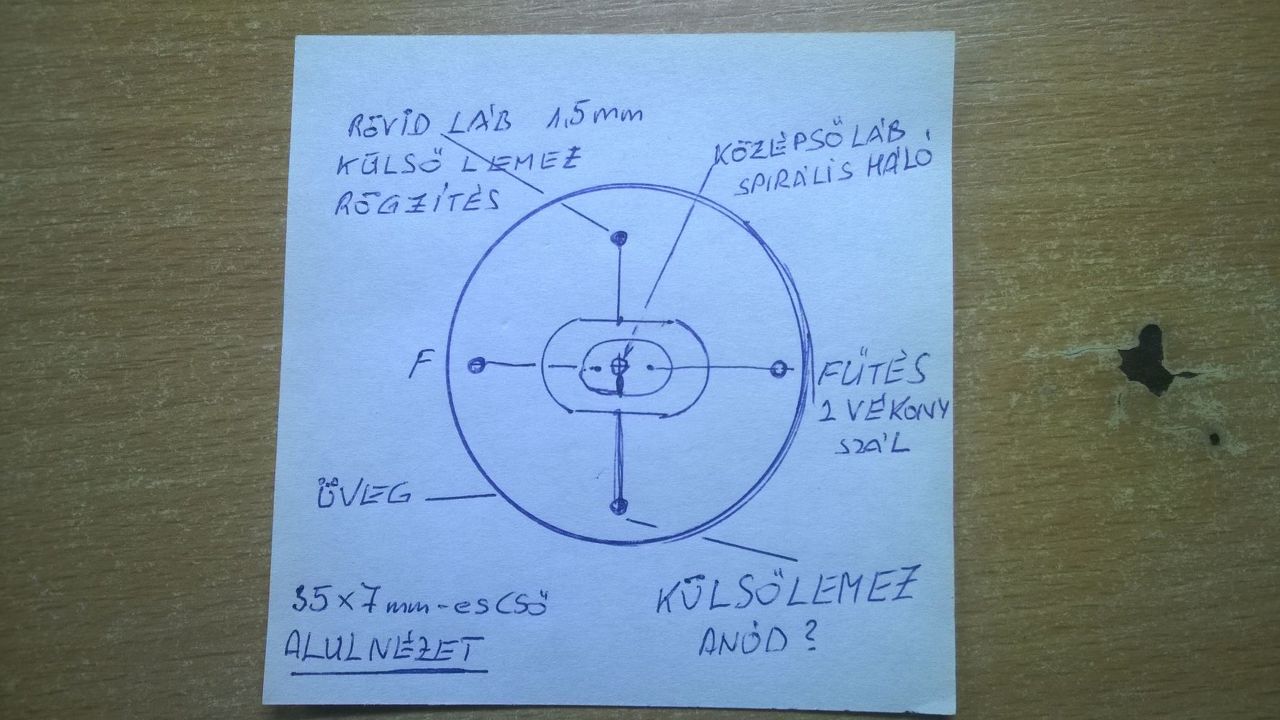 RÖVID LÁB 1,5mm
KÜLSŐ LEMEZ
RÖGZÍTÉS
KÖZÉPSŐ LÁB
SPIRÁLIS HÁLÓ
F
FŰTÉS
2 VÉKONY
SZÁL
ÜVEG
KÜLSŐLEMEZ
ANÓD?
35×7mm-es CSŐ
ALULNÉZET